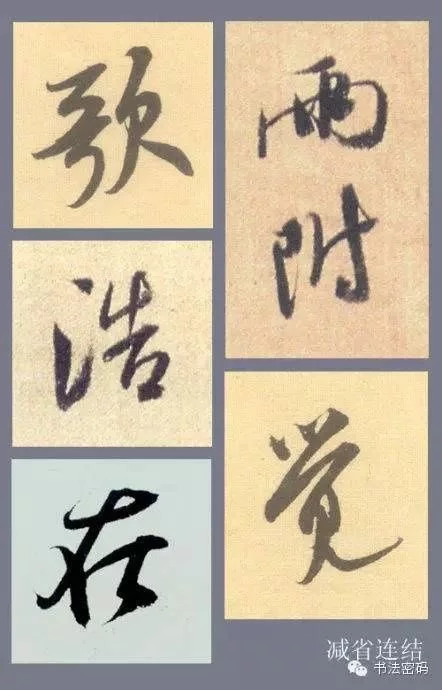 歌
浩
在
雨
附
觉
减省连结
书法密码